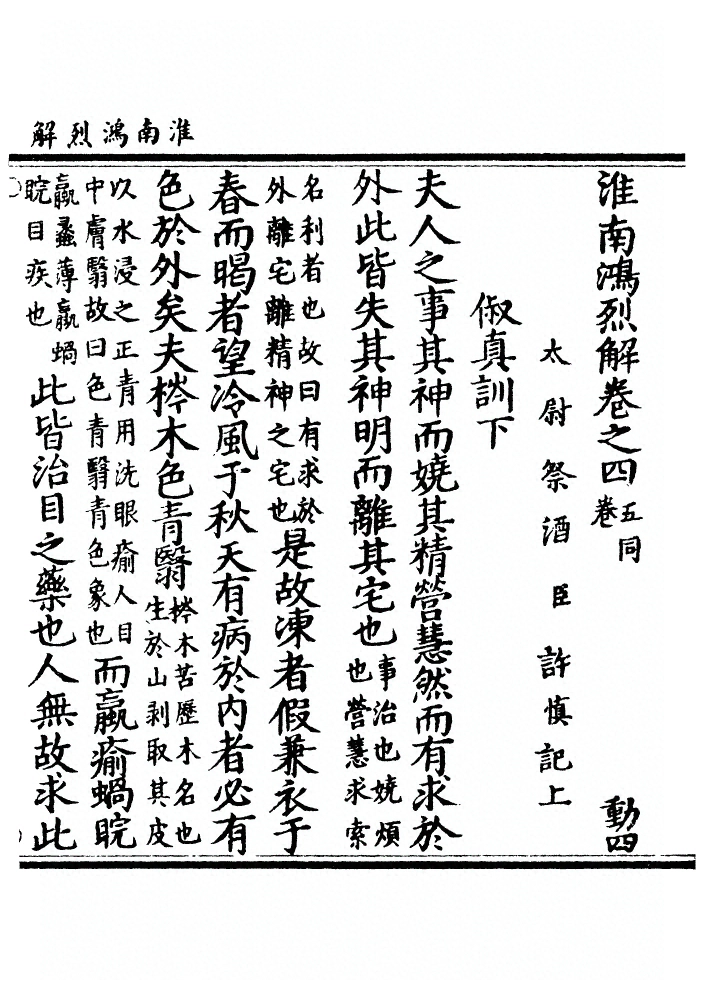 淮南鴻烈解
淮南鴻烈解卷之四 五同卷 動四
太尉祭酒臣許慎記上
俶真訓下
夫人之事其神而嬈其精營慧然而有求於
外此皆失其神明而離其宅也 事治也嬈煩也營慧求索
名利者也故曰有求於外離宅離精神之宅也 是故凍者假兼衣于
春而暍者望冷風于秋天有病於内者必有
色於外矣夫梣木色青翳 梣木苦歷木名也生於山剥取其皮
以水浸之正青用洗眼瘉人目中膚翳故曰色青翳青色象也 而蠃瘉蝸睆
蠃蠡薄蠃蝸睆目疾也 此皆治目之藥也人無故求此